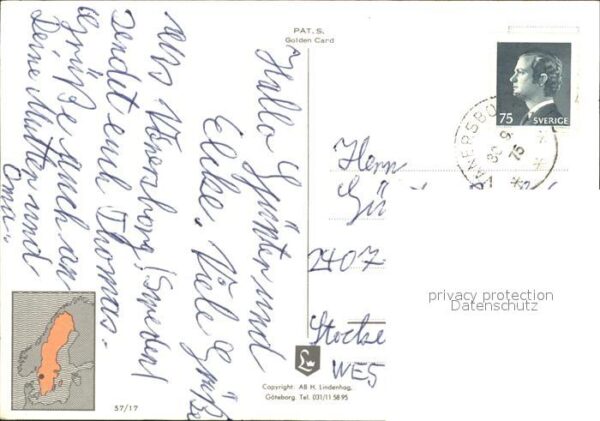 PAT. S.
Golden Card
Hallo Günter und
Elke. Viele Grüße
aus Vänersborg (Sweden)
sendet euch Thomas.
Grüße Auch an
Deine Mutter und
Oma.
75 SVERIGE
VÄNERSBO
75
Herrn
2407
WES
privacy protection
Datenschutz
Copyright. AB H. Lindenhag,
Göteborg. Tel. 031/11 58 95
57/17